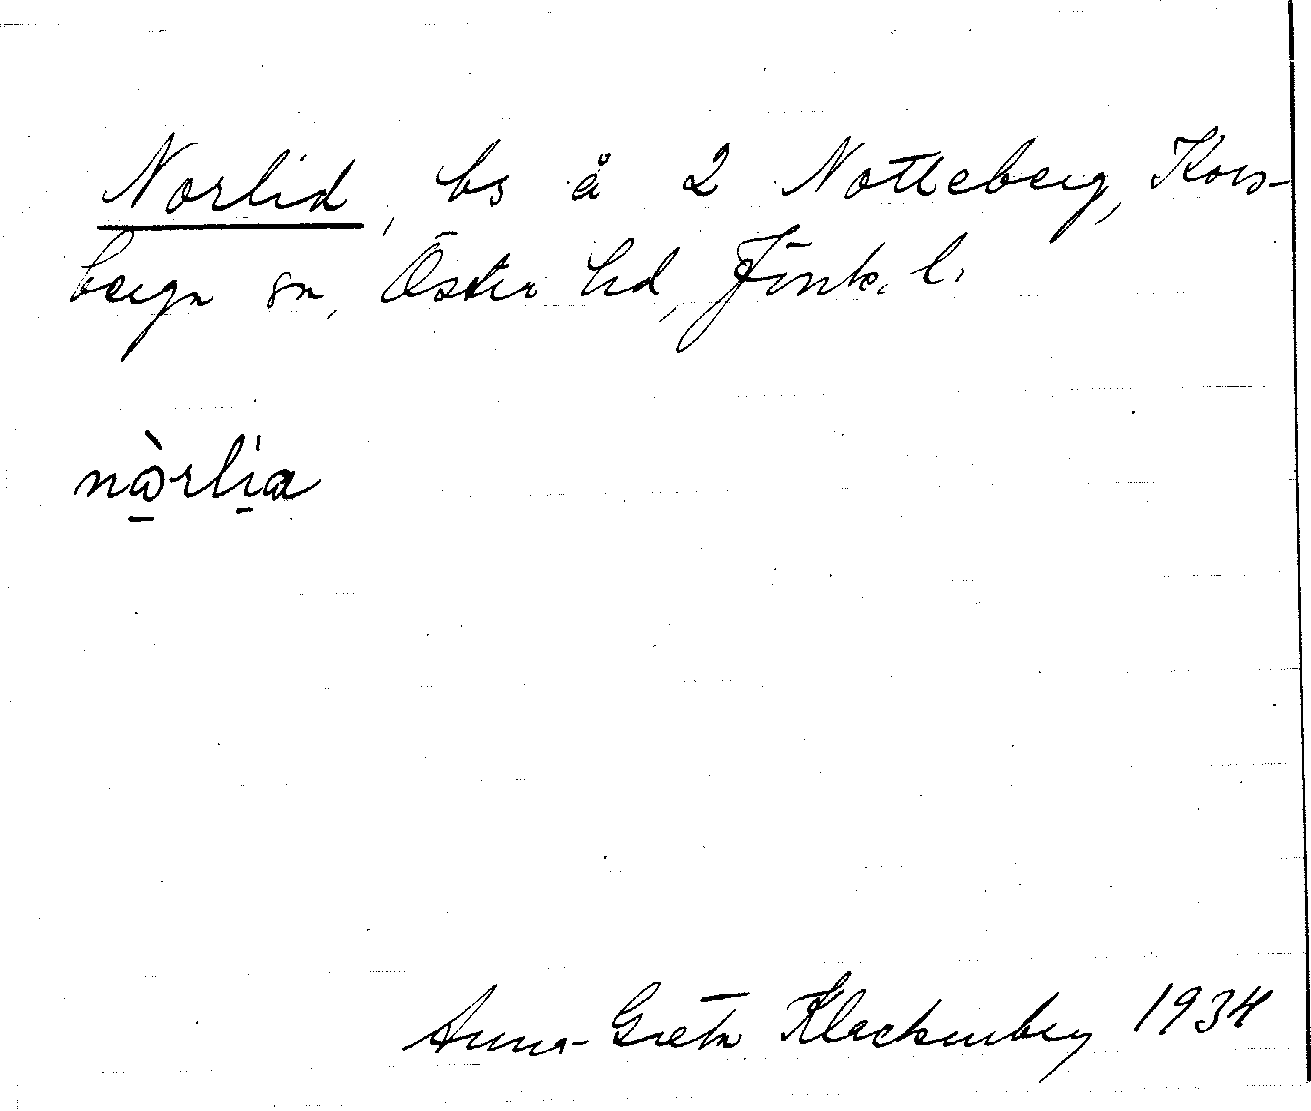 Norlid, bs å 2 Notteberg, Kors-
berga sn, Östra hd, Jönk. l.
nòrlia
Anna-Greta Klackenberg 1934